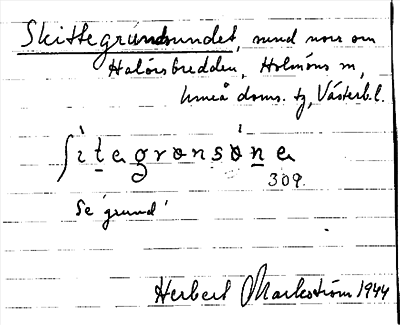 Skittegrundsundet, sund norr om
Halörsbredden, Holmöns sn,
Umeå doms. tg, Västerb.l.
ʃìtegrønsønə
309.
Se 'grund'
Herbert Markström 1944